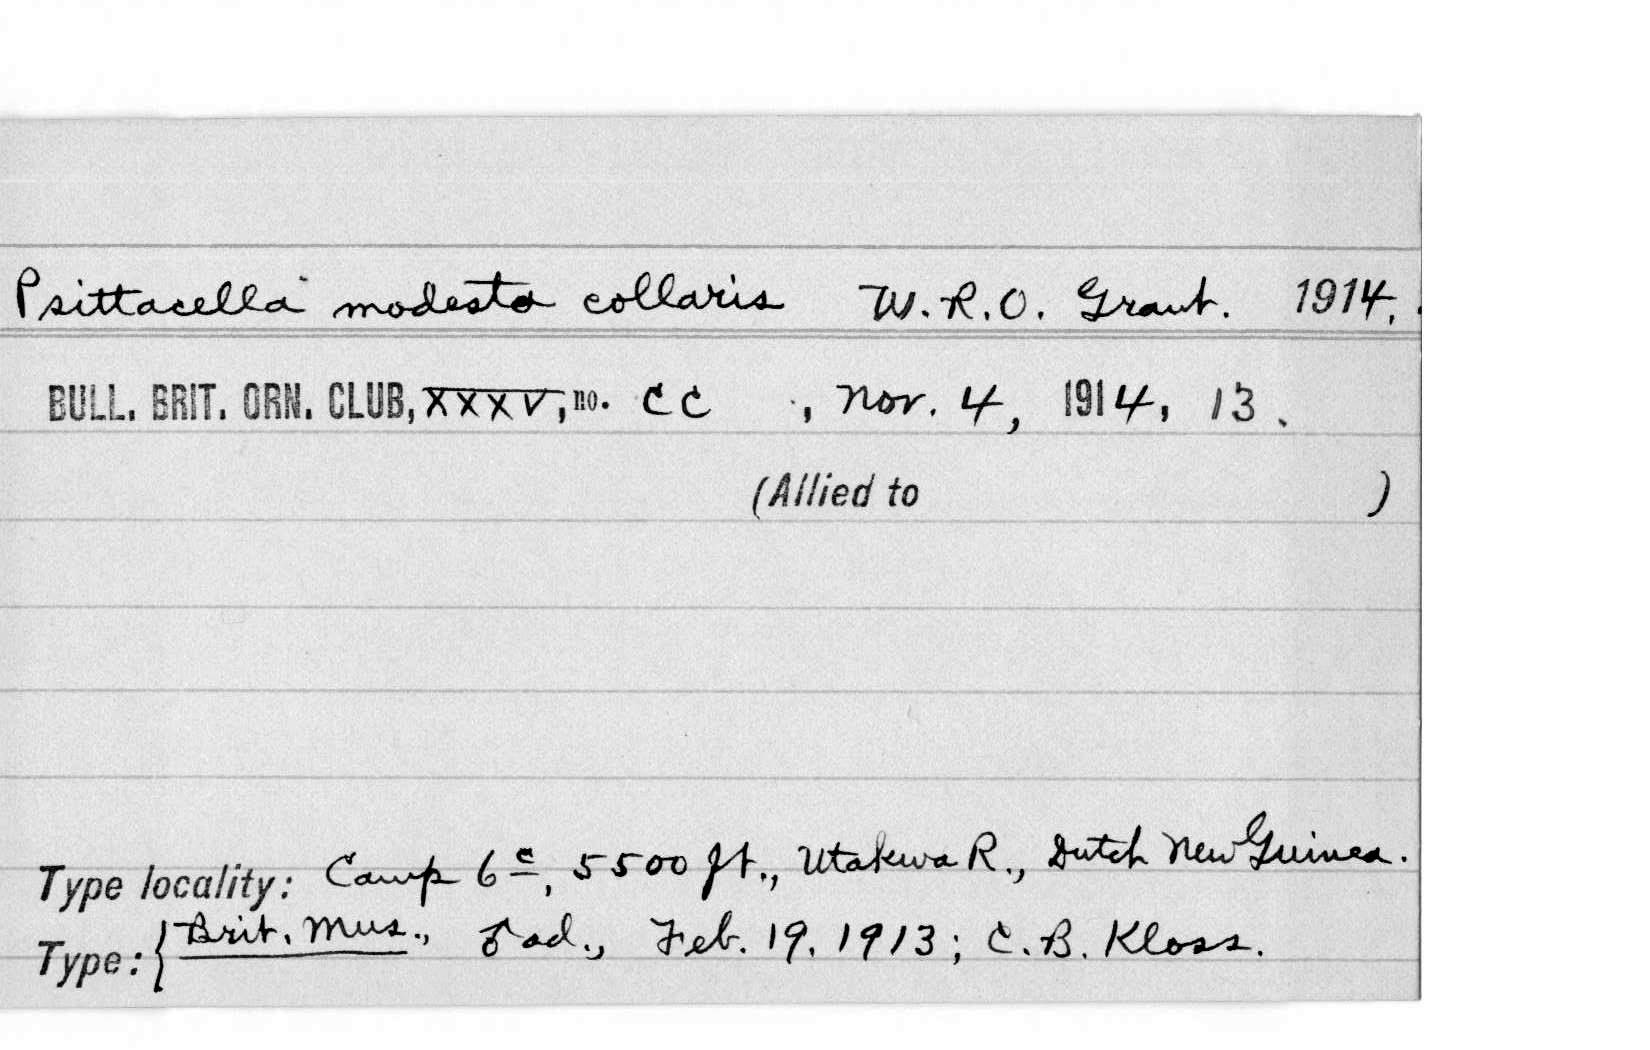 Psittacella modesta collaris W. R. O. Grant. 1914.
BULL. BRIT. ORN. CLUB, XXXV, no. CC , Nov. 4, 1914, 13.
(Allied to )
Type locality: Camp 6c, 5500 ft., Utakwa R., Dutch New Guinea.
Type: { Brit. Mus., ♂ ad., Feb. 19. 1913; C. B. Kloss.